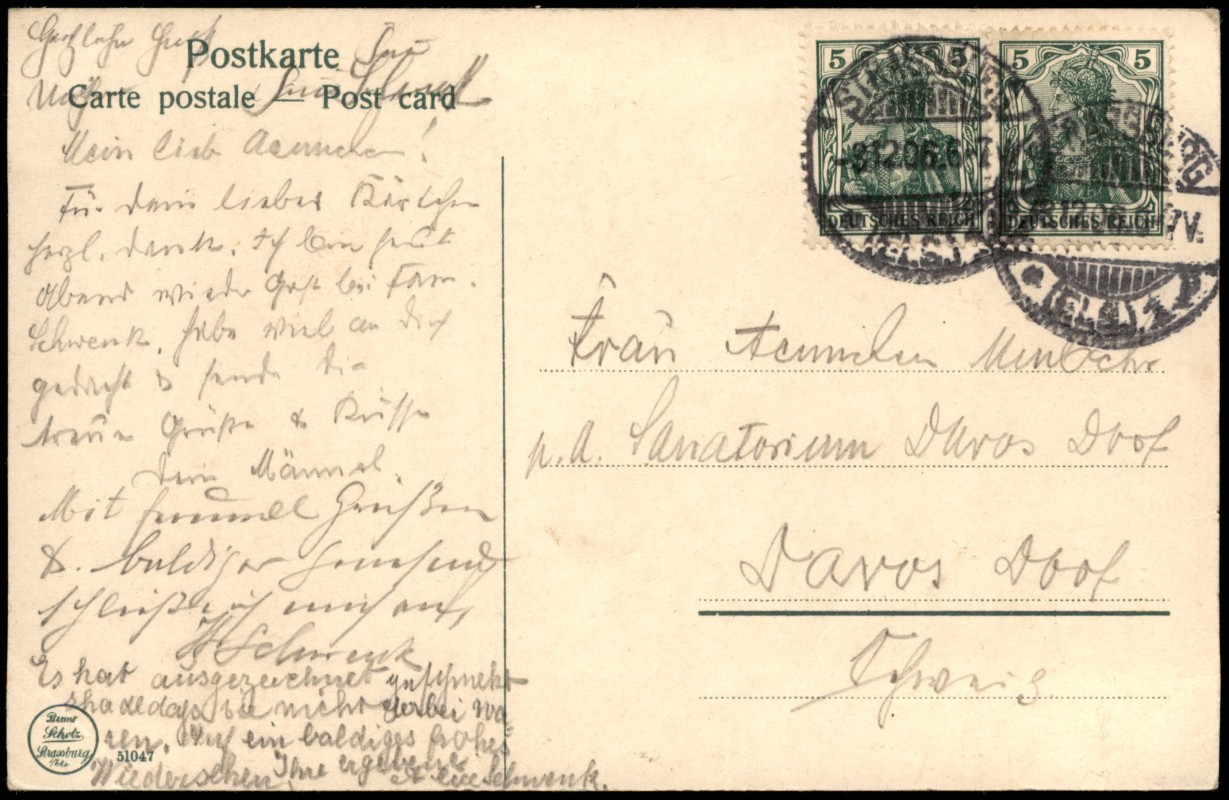 Herzliche Grüße
Postkarte
Carte postale — Post card
Mein lieb Aennchen!
Für Dein liebes Kärtchen
herzl. Dank. Ich bin heut
Abend wieder Gast bei Fam.
Schwenk, habe viel an Dich
gedacht & sende Dir
treue Grüße & Küsse
Dein Männel.
Mit freundl Grüßen
& baldiger Genesung
schließe ich mich an,
Schwenk
Es hat ausgezeichnet geschmekt
schade dass Sie nicht dabei wa-
ren. Auf ein baldiges frohes
Wiedersehen, Ihre ergebene
Schwenk.
Bruno
Scholz,
Strassburg
51047
5 5
5 5
DEUTSCHES REICH
DEUTSCHES REICH
STRASSBURG
-3.12.06.6-7
(ELS.)
STRASSBURG
7V.
* (ELS.) 1
Frau Aennchen
p. A. Sanatorium Davos Dorf
Davos Dorf
Schweiz.